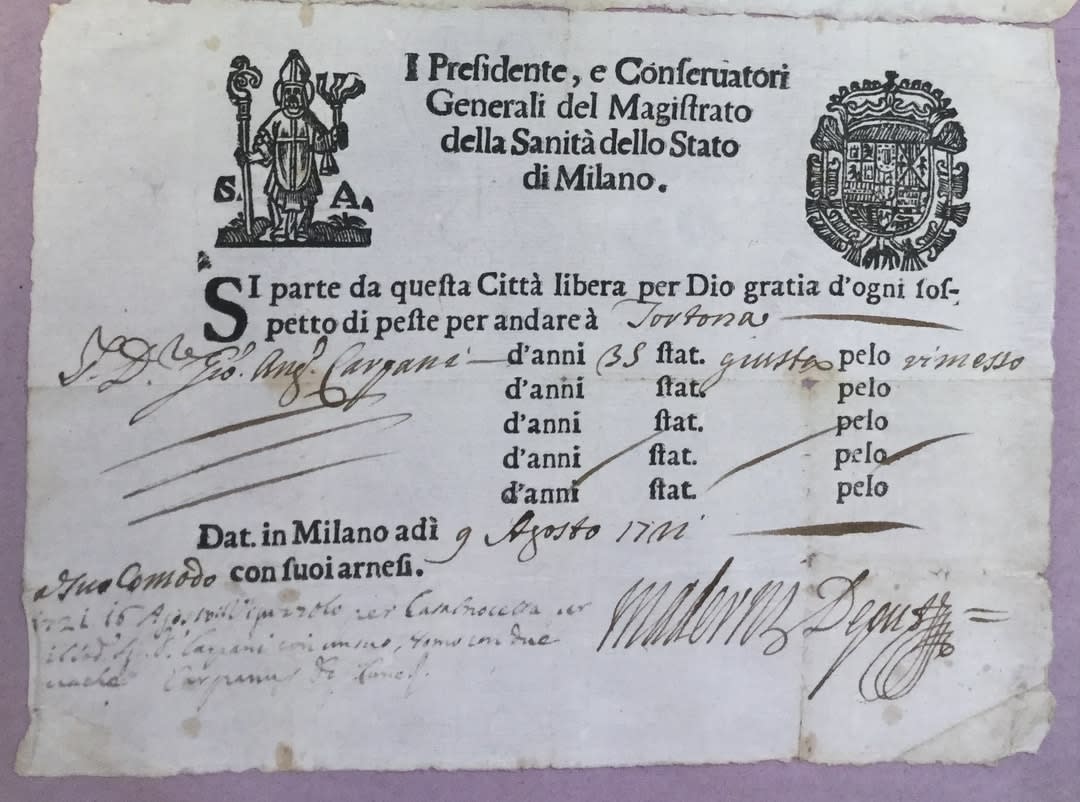 I Preſidente, e Conſeruatori
Generali del Magiſtrato
della Sanità dello Stato
di Milano.
S. A.
SI parte da queſta Città libera per Dio gratia d'ogni ſoſ-
petto di peſte per andare à Tortona
Gio. Ang. Carpani d'anni 35 ſtat. giusta pelo rimesso
d'anni ſtat. pelo
d'anni ſtat. pelo
d'anni ſtat. pelo
d'anni ſtat. pelo
Dat. in Milano adì 9 Agosto 1721
a suo Comodo con ſuoi arneſi.
1721 16 Agosto per
Carpani con un suo, con due
Maderna Deput